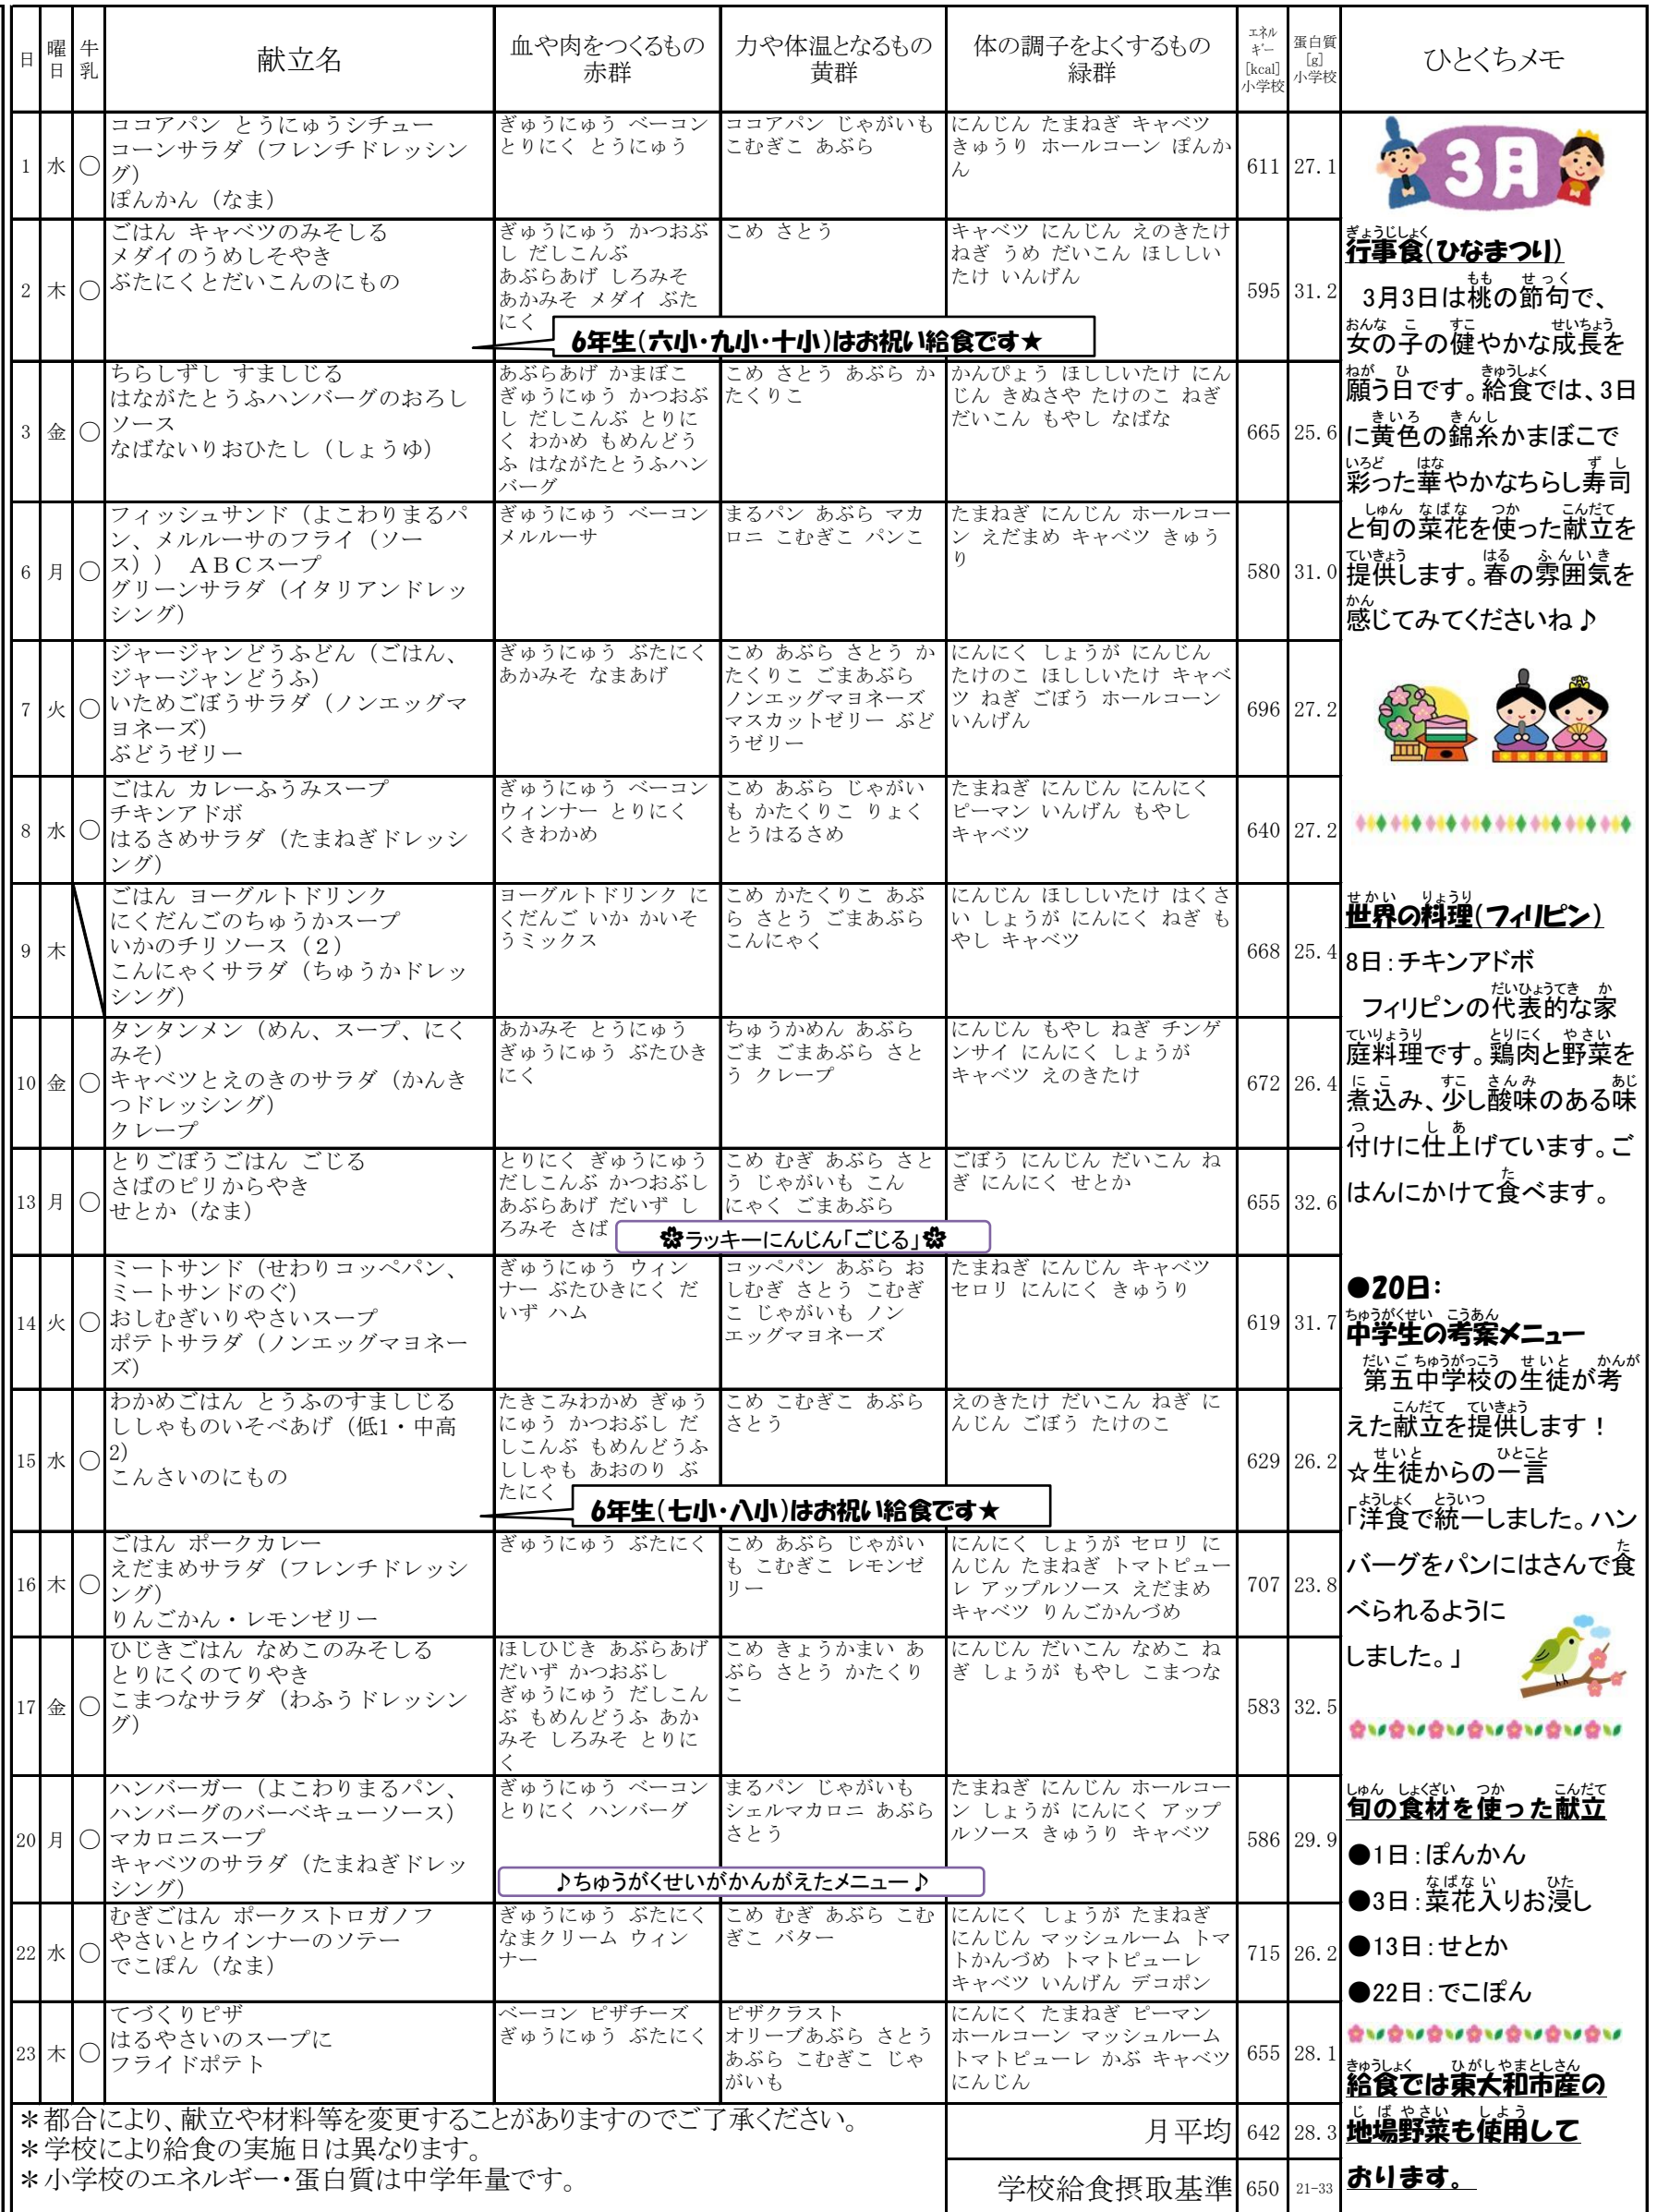 日
曜日
牛乳
献立名
血や肉をつくるもの
赤群
力や体温となるもの
黄群
体の調子をよくするもの
緑群
エネルギー
[kcal]
小学校
蛋白質
[g]
小学校
ひとくちメモ
1 水 ○
ココアパン とうにゅうシチュー
コーンサラダ（フレンチドレッシン
グ）
ぽんかん（なま）
ぎゅうにゅう ベーコン
とりにく とうにゅう
ココアパン じゃがいも
こむぎこ あぶら
にんじん たまねぎ キャベツ
きゅうり ホールコーン ぽんか
ん
611 27.1
2 木 ○
ごはん キャベツのみそしる
メダイのうめしそやき
ぶたにくとだいこんのにもの
ぎゅうにゅう かつおぶ
し だしこんぶ
あぶらあげ しろみそ
あかみそ メダイ ぶた
にく
こめ さとう
キャベツ にんじん えのきたけ
ねぎ うめ だいこん ほししい
たけ いんげん
595 31.2
6年生(六小・九小・十小)はお祝い給食です★
3 金 ○
ちらしずし すましじる
はながたとうふハンバーグのおろし
ソース
なばないりおひたし（しょうゆ）
あぶらあげ かまぼこ
ぎゅうにゅう かつおぶ
し だしこんぶ とりに
く わかめ もめんどう
ふ はながたとうふハン
バーグ
こめ さとう あぶら か
たくりこ
かんぴょう ほししいたけ にん
じん きぬさや たけのこ ねぎ
だいこん もやし なばな
665 25.6
6 月 ○
フィッシュサンド（よこわりまるパ
ン、メルルーサのフライ（ソー
ス）） ＡＢＣスープ
グリーンサラダ（イタリアンドレッ
シング）
ぎゅうにゅう ベーコン
メルルーサ
まるパン あぶら マカ
ロニ こむぎこ パンこ
たまねぎ にんじん ホールコー
ン えだまめ キャベツ きゅう
り
580 31.0
7 火 ○
ジャージャンどうふどん（ごはん、
ジャージャンどうふ）
いためごぼうサラダ（ノンエッグマ
ヨネーズ）
ぶどうゼリー
ぎゅうにゅう ぶたにく
あかみそ なまあげ
こめ あぶら さとう か
たくりこ ごまあぶら
ノンエッグマヨネーズ
マスカットゼリー ぶど
うゼリー
にんにく しょうが にんじん
たけのこ ほししいたけ キャベ
ツ ねぎ ごぼう ホールコーン
いんげん
696 27.2
8 水 ○
ごはん カレーふうみスープ
チキンアドボ
はるさめサラダ（たまねぎドレッシ
ング）
ぎゅうにゅう ベーコン
ウィンナー とりにく
くきわかめ
こめ あぶら じゃがい
も かたくりこ りょく
とうはるさめ
たまねぎ にんじん にんにく
ピーマン いんげん もやし
キャベツ
640 27.2
9 木
ごはん ヨーグルトドリンク
にくだんごのちゅうかスープ
いかのチリソース（２）
こんにゃくサラダ（ちゅうかドレッ
シング）
ヨーグルトドリンク に
くだんご いか かいそ
うミックス
こめ かたくりこ あぶ
ら さとう ごまあぶら
こんにゃく
にんじん ほししいたけ はくさ
い しょうが にんにく ねぎ も
やし キャベツ
668 25.4
10 金 ○
タンタンメン（めん、スープ、にく
みそ）
キャベツとえのきのサラダ（かんき
つドレッシング）
クレープ
あかみそ とうにゅう
ぎゅうにゅう ぶたひき
にく
ちゅうかめん あぶら
ごま ごまあぶら さと
う クレープ
にんじん もやし ねぎ チンゲ
ンサイ にんにく しょうが
キャベツ えのきたけ
672 26.4
13 月 ○
とりごぼうごはん ごじる
さばのピリからやき
せとか（なま）
とりにく ぎゅうにゅう
だしこんぶ かつおぶし
あぶらあげ だいず し
ろみそ さば
こめ むぎ あぶら さと
う じゃがいも こん
にゃく ごまあぶら
ごぼう にんじん だいこん ね
ぎ にんにく せとか
655 32.6
ラッキーにんじん「ごじる」
14 火 ○
ミートサンド（せわりコッペパン、
ミートサンドのぐ）
おしむぎいりやさいスープ
ポテトサラダ（ノンエッグマヨネー
ズ）
ぎゅうにゅう ウィン
ナー ぶたひきにく だ
いず ハム
コッペパン あぶら お
しむぎ さとう こむぎ
こ じゃがいも ノン
エッグマヨネーズ
たまねぎ にんじん キャベツ
セロリ にんにく きゅうり
619 31.7
15 水 ○
わかめごはん とうふのすましじる
ししゃものいそべあげ（低1・中高
2）
こんさいのにもの
たきこみわかめ ぎゅう
にゅう かつおぶし だ
しこんぶ もめんどうふ
ししゃも あおのり ぶ
たにく
こめ こむぎこ あぶら
さとう
えのきたけ だいこん ねぎ に
んじん ごぼう たけのこ
629 26.2
6年生(七小・八小)はお祝い給食です★
16 木 ○
ごはん ポークカレー
えだまめサラダ（フレンチドレッシ
ング）
りんごかん・レモンゼリー
ぎゅうにゅう ぶたにく
こめ あぶら じゃがい
も こむぎこ レモンゼ
リー
にんにく しょうが セロリ に
んじん たまねぎ トマトピュー
レ アップルソース えだまめ
キャベツ りんごかんづめ
707 23.8
17 金 ○
ひじきごはん なめこのみそしる
とりにくのてりやき
こまつなサラダ（わふうドレッシン
グ）
ほしひじき あぶらあげ
だいず かつおぶし
ぎゅうにゅう だしこん
ぶ もめんどうふ あか
みそ しろみそ とりに
く
こめ きょうかまい あ
ぶら さとう かたくり
こ
にんじん だいこん なめこ ね
ぎ しょうが もやし こまつな
583 32.5
20 月 ○
ハンバーガー（よこわりまるパン、
ハンバーグのバーベキューソース）
マカロニスープ
キャベツのサラダ（たまねぎドレッ
シング）
ぎゅうにゅう ベーコン
とりにく ハンバーグ
まるパン じゃがいも
シェルマカロニ あぶら
さとう
たまねぎ にんじん ホールコー
ン しょうが にんにく アップ
ルソース きゅうり キャベツ
586 29.9
♪ちゅうがくせいがかんがえたメニュー♪
22 水 ○
むぎごはん ポークストロガノフ
やさいとウインナーのソテー
でこぽん（なま）
ぎゅうにゅう ぶたにく
なまクリーム ウィン
ナー
こめ むぎ あぶら こむ
ぎこ バター
にんにく しょうが たまねぎ
にんじん マッシュルーム トマ
トかんづめ トマトピューレ
キャベツ いんげん デコポン
715 26.2
23 木 ○
てづくりピザ
はるやさいのスープに
フライドポテト
ベーコン ピザチーズ
ぎゅうにゅう ぶたにく
ピザクラスト
オリーブあぶら さとう
あぶら こむぎこ じゃ
がいも
にんにく たまねぎ ピーマン
ホールコーン マッシュルーム
トマトピューレ かぶ キャベツ
にんじん
655 28.1
＊都合により、献立や材料等を変更することがありますのでご了承ください。
＊学校により給食の実施日は異なります。
＊小学校のエネルギー・蛋白質は中学年量です。
月平均 642 28.3
学校給食摂取基準 650 21-33
3月
ぎょうじしょく
行事食(ひなまつり)
もも せっく
3月3日は桃の節句で、
おんな こ すこ せいちょう
女の子の健やかな成長を
ねが ひ きゅうしょく
願う日です。給食では、3日
きいろ きんし
に黄色の錦糸かまぼこで
いろど はな ずし
彩った華やかなちらし寿司
しゅん なばな つか こんだて
と旬の菜花を使った献立を
ていきょう はる ふんいき
提供します。春の雰囲気を
かん
感じてみてくださいね♪
せかい りょうり
世界の料理(フィリピン)
8日：チキンアドボ
だいひょうてき か
フィリピンの代表的な家
ていりょうり とりにく やさい
庭料理です。鶏肉と野菜を
に こ すこ さんみ あじ
煮込み、少し酸味のある味
つ しあ
付けに仕上げています。ご
た
はんにかけて食べます。
●20日：
ちゅうがくせい こうあん
中学生の考案メニュー
だいご ちゅうがっこう せいと かんが
第五中学校の生徒が考
こんだて ていきょう
えた献立を提供します！
せいと ひとこと
☆生徒からの一言
ようしょく とういつ
「洋食で統一しました。ハン
た
バーグをパンにはさんで食
べられるように
しました。」
しゅん しょくざい つか こんだて
旬の食材を使った献立
●1日：ぽんかん
なばな い ひた
●3日：菜花入りお浸し
●13日：せとか
●22日：でこぽん
きゅうしょく ひがしやまとしさん
給食では東大和市産の
じ ば やさい しよう
地場野菜も使用して
おります。